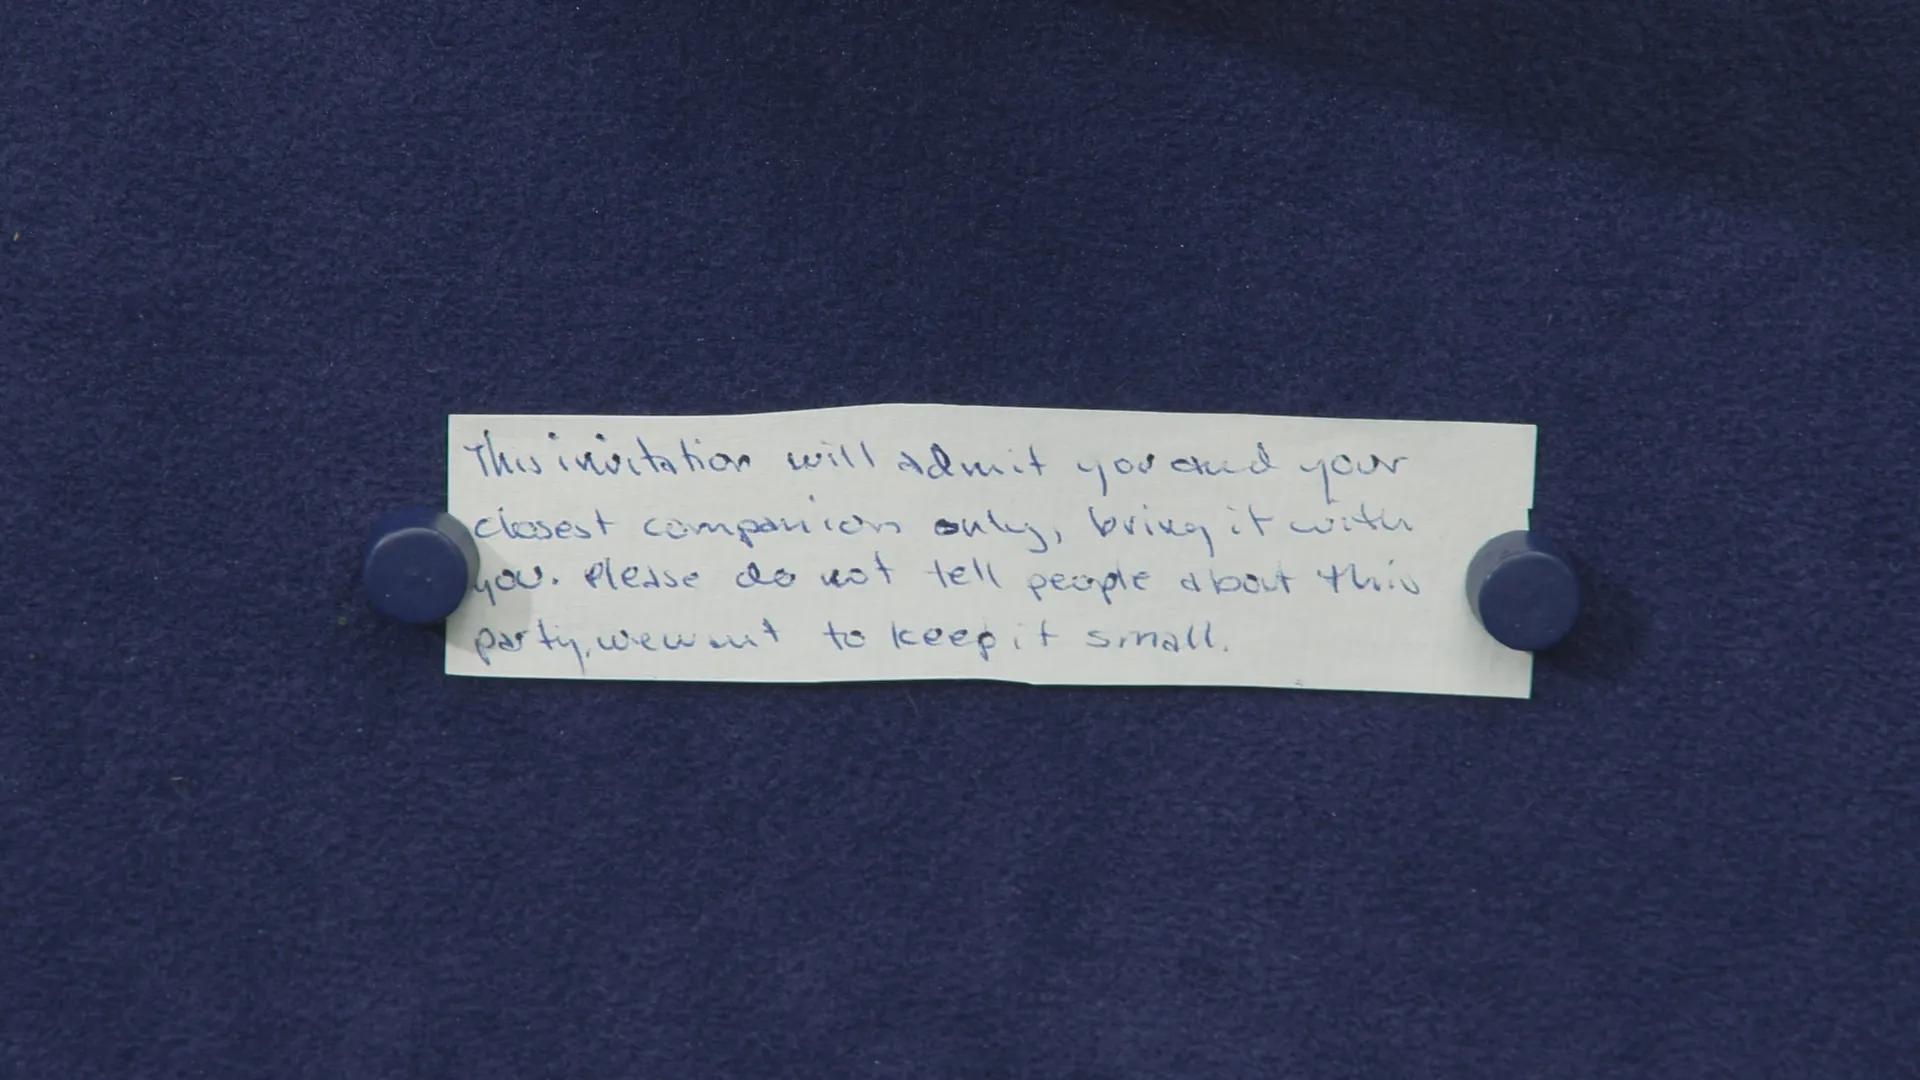 This invitation will admit you and your
closest companion only, bring it with
you. Please do not tell people about this
party, we want to keep it small.